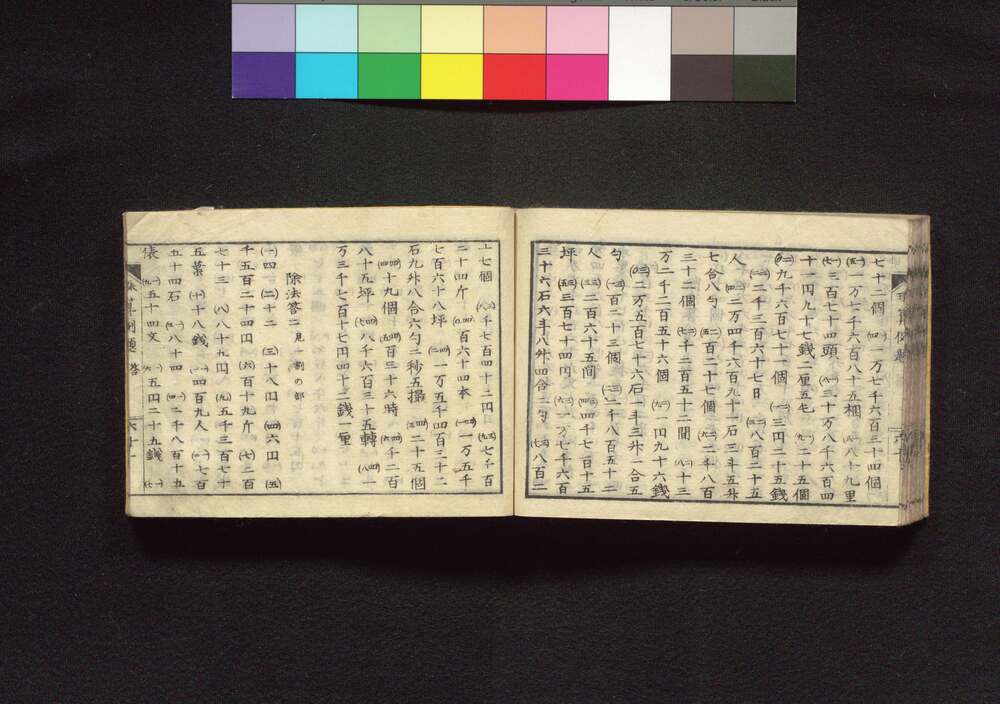 七十二個 (四一) 一万七千六百三十四個
(五一) 一万七千六百八十五梱 (六一) 八十九里
(七一) 三百七十四頭 (八一) 三十万八千六百四
十一円九十七銭二厘五毛 (九一) 二十五個
(〇二) 九千六百七十一個 (一二) 三円二十五銭
(二二) 二千三百六十七日 (三二) 八百二十五
人 (四二) 二万四千六百九十一石三斗五升
七合八勺 (五二) 百二十七個 (六二) 二千八百
三十二個 (七二) 千二百五十二間 (八二) 十三
万二千二百五十六個 (九二) 一円九十六銭
(〇三) 二万五百七十六石一斗三升一合五
勺 (一三) 百二十三個 (二三) 千八百五十二
人 (三三) 二百六十五間 (四三) 四千七百二十五
坪 (五三) 三百七十四円 (六三) 一万七千六百
三十六石六斗八升四合二勺 (七三) 八百二
十七個 (八三) 千七百四十二円 (九三) 七千百
二十四斤 (〇四) 百六十四本 (一四) 一万五千
七百六十八坪 (二四) 一万五千四百三十二
石九升八合六勺二秒五撮 (三四) 二十五個
(四四) 十九個 (五四) 百三十六時 (六四) 千二百
八十五坪 (七四) 八千六百三十五轉 (八四) 一
万三千七百十七円四十二銭一厘
除法答二 見一割の部
(一) 四 (二) 十二 (三) 三十八円 (四) 六円 (五)
千五百二十四円 (六) 百十九斤 (七) 二百
七十三 (八) 八十九円 (九) 五千三百七十
五藁 (十) 十八銭 (一一) 四百九人 (二一) 七百
五十四石 (三一) 八十四 (四一) 二千八百十九
俵 (五一) 五十四文 (六一) 五円二十五銭 (七一)